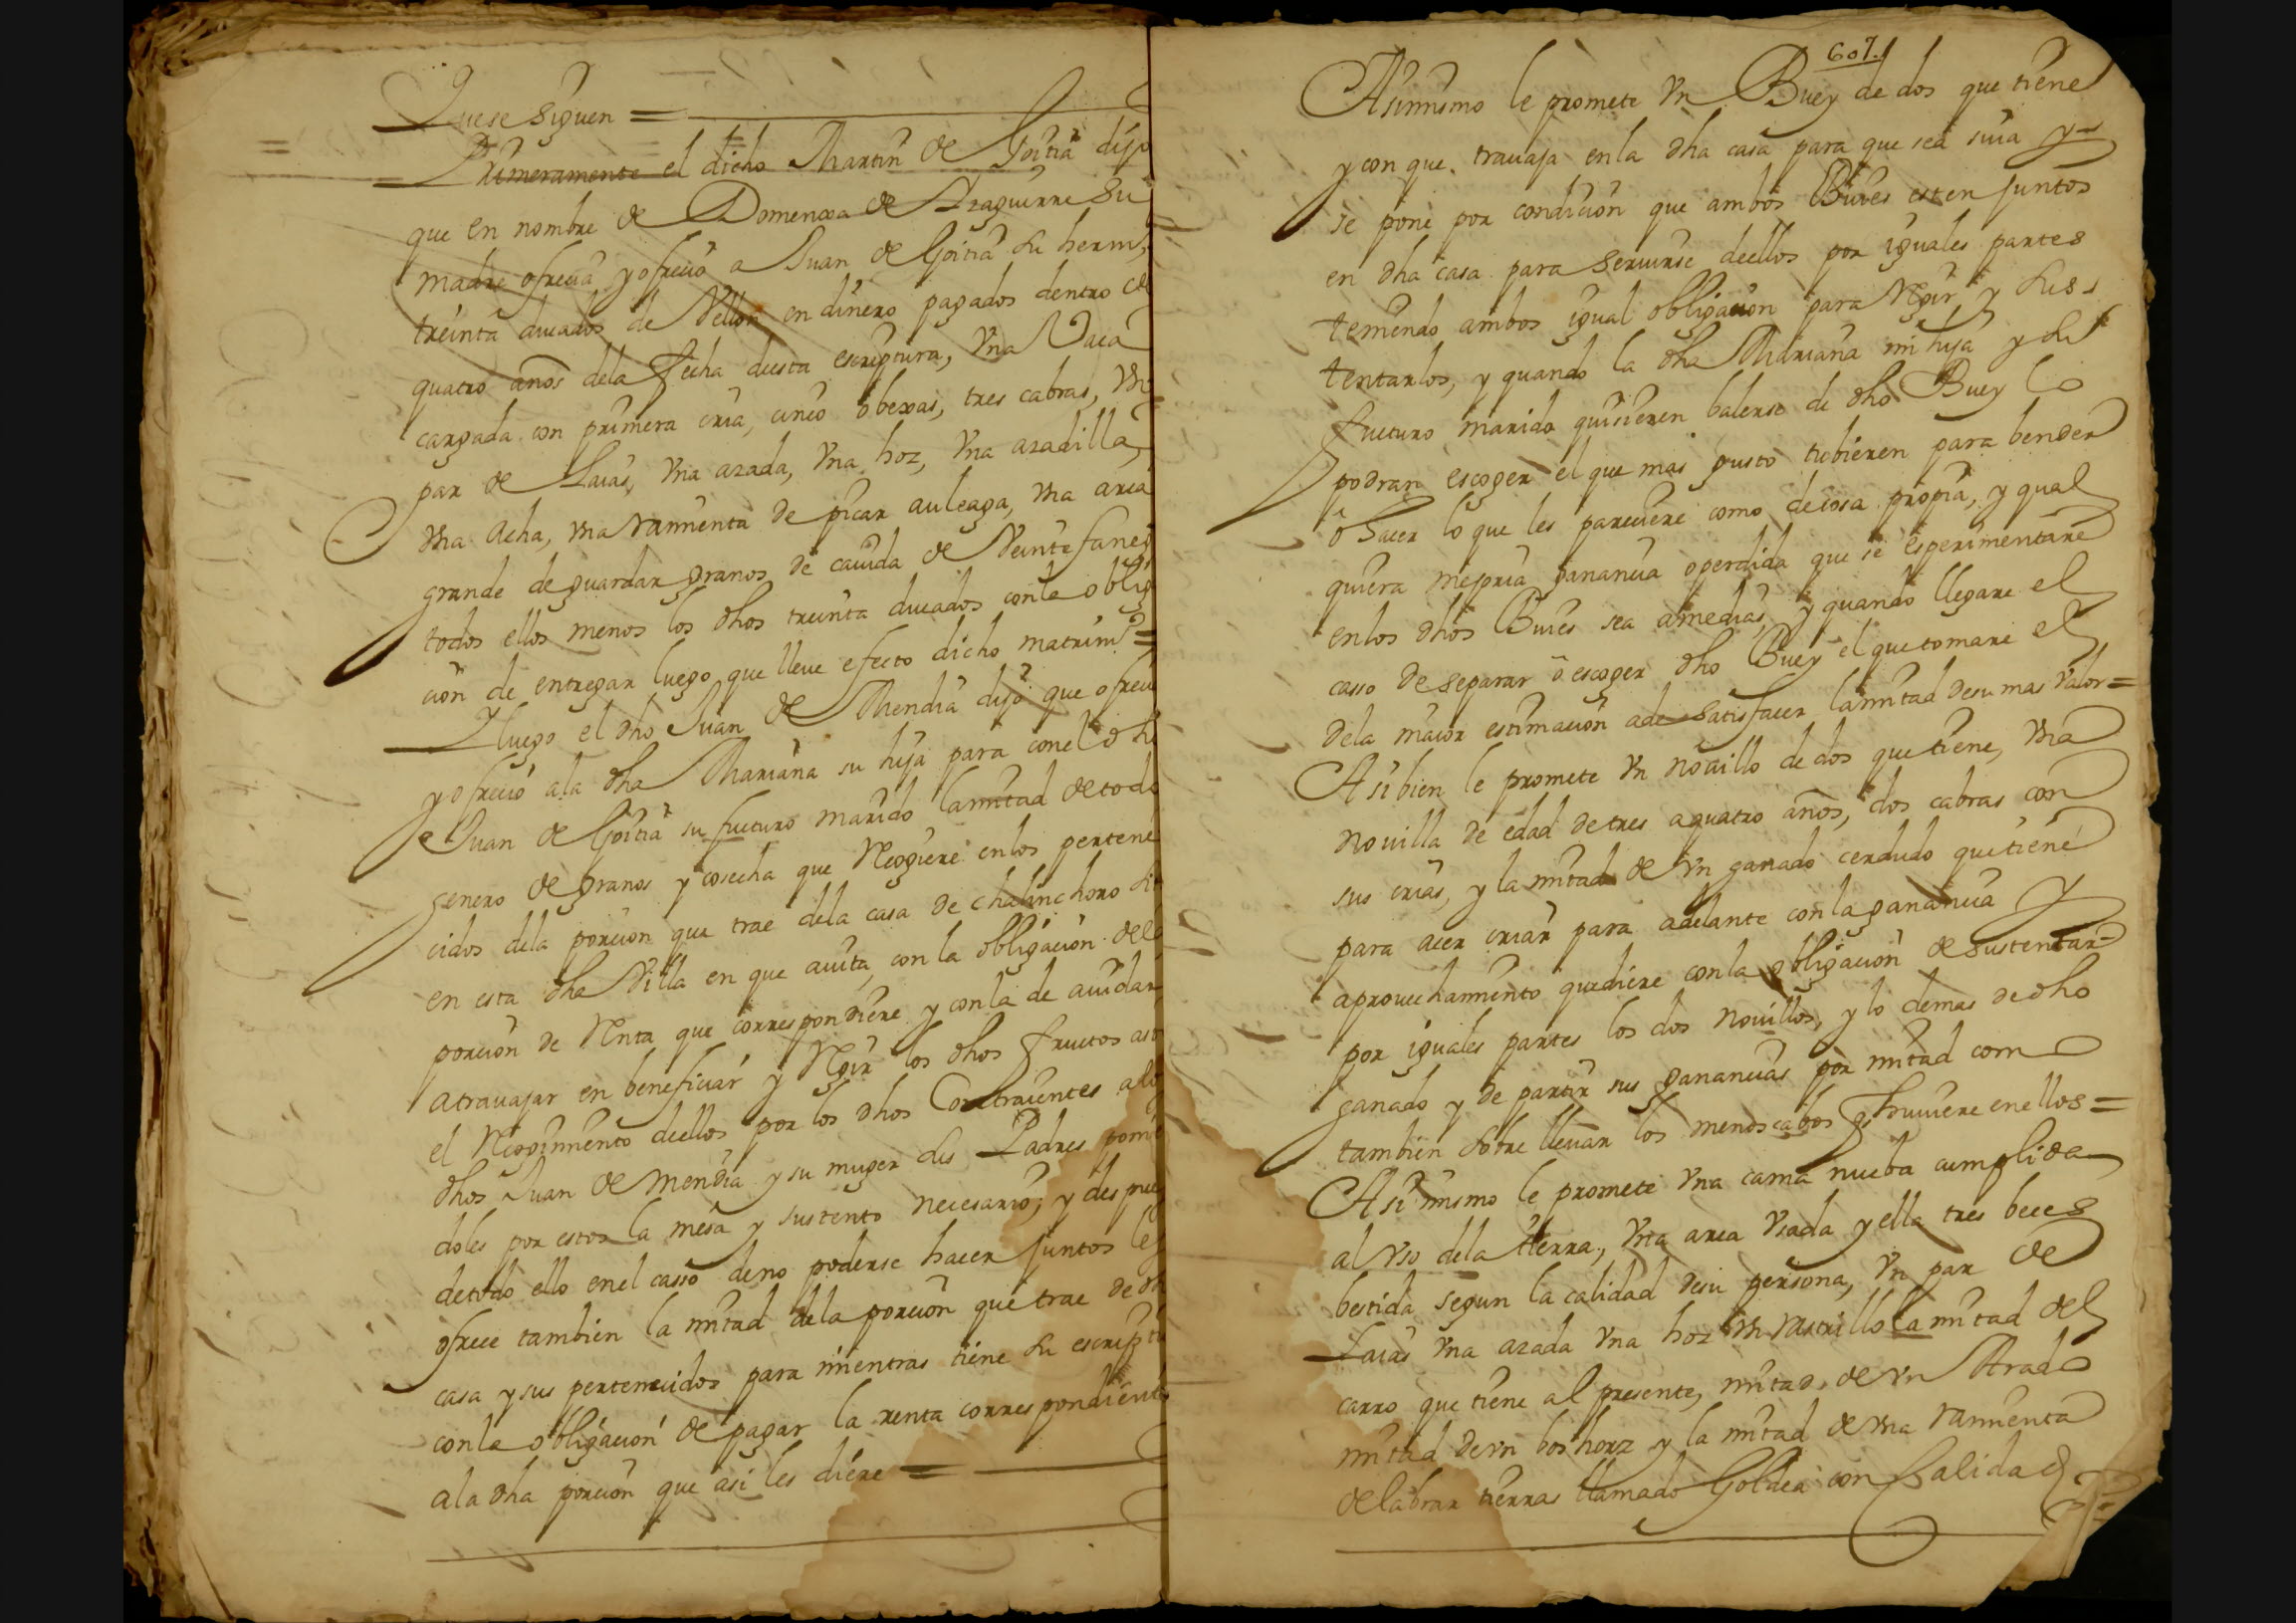 Que se siguen =
Primeramente el dicho Martin de Goitia dijo
que en nombre de Domenxa de Araguirre su
madre ofrecia y ofrecio a Juan de Goitia su herm.
treinta ducados de Vellon en dinero pagados dentro de
quatro años dela fecha desta escriptura, Vna Vaca
cargada con primera cria, cinco obexas, tres cabras, Vn
par de Laias, Vna azada, Vna hoz, Vna azadilla,
Vna Acha, Vna rannienta de picar auleaga, Vna arca
grande de guardar granos de cauida de Veinte faneg
todos ellos menos los dhos treinta ducados conla oblig
cion de entregar luego que lleue efecto dicho matrim.º =
Y luego el dho Juan de Mendia dijo que ofreci
y ofrecio ala dha Mariana su hija para conel dh
Juan de Goitia su fucturo marido lamitad de todo
genero de granos y cosecha que Recogiere enlos pertene
cidos dela porcion que trae dela casa de chalinchoro si
en esta dha Villa en que auita, con la obligacion dela
porcion de Renta que correspondiere y con la de auidar
atrauajar en beneficiar y Regir los dhos fructos asi
el Recogimiento dellos por los dhos Contraientes alos
dhos Juan de Mendia y su muger sus Padres ponie
doles por estos la mesa y sustento necesario; y despues
detodo ello enel casso deno poderse hacer juntos les
ofrece tambien la mitad dela porcion que trae de dh
casa y sus pertenecidos para mientras tiene su escriptu
conla obligacion de pagar la renta correspondiente
ala dha porcion que asi les diere =
607.
Asimismo le promete Vn Buey de dos que tiene
y con que trauaja enla dha casa para que sea suia y
se pone por condicion que ambos Buies esten juntos
en dha casa para seruirse dellos por iguales partes
teniendo ambos igual obligacion para Regir y sus
tentarlos, y quando la dha Mariana mi hija y su
fucturo marido quisieren balerse de dho Buey lo
podran escoger el que mas gusto tubieren para bender
ô hacer lo que les pareciere como de cosa propia, y qual
quiera mejoria ganancia o perdida que se esperimentare
enlos dhos Buies sea amedias, y quando llegare el
casso de separar ô escoger dho Buey el que tomare el
dela maior estimacion ade satisfacer lamitad desu mas Valor =
Asi bien le promete Vn nouillo de dos que tiene, Vna
nouilla de edad de tres aquatro años, dos cabras con
sus crias, y la mitad de Vn ganado cerdudo que tiene
para acer criar para adelante con la ganancia y
aprouechamiento quediere conla obligacion de sustentar
por iguales partes los dos nouillos, y lo demas de dho
ganado y de partir sus ganancias por mitad como
tambien sobre lleuar los menoscabos q huuiere enellos =
Asi mismo le promete Vna cama nueba cumplida
al Vso dela tierra, Vna arca Vsada y ella tres beces
bestida segun la calidad desu persona, Vn par de
Laias Vna azada Vna hoz Vn rastrillo la mitad del
carro que tiene al presente, mitad de Vn Arado
mitad de Vn boshorz y la mitad de Vna rannienta
de labrar tierras llamado Goldea con salida